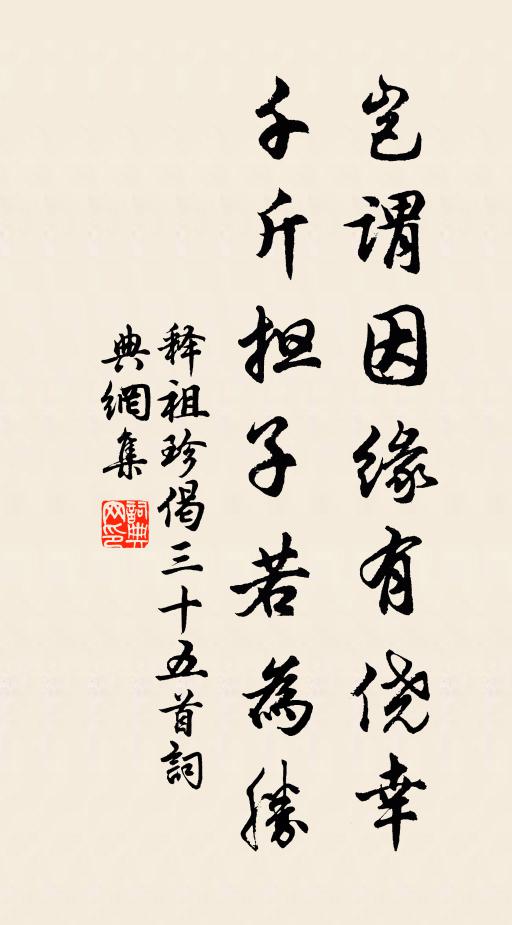 岂谓因缘有侥幸
千斤担子若為勝
释祖珍偈三十五首詞
典網集
詞典网印